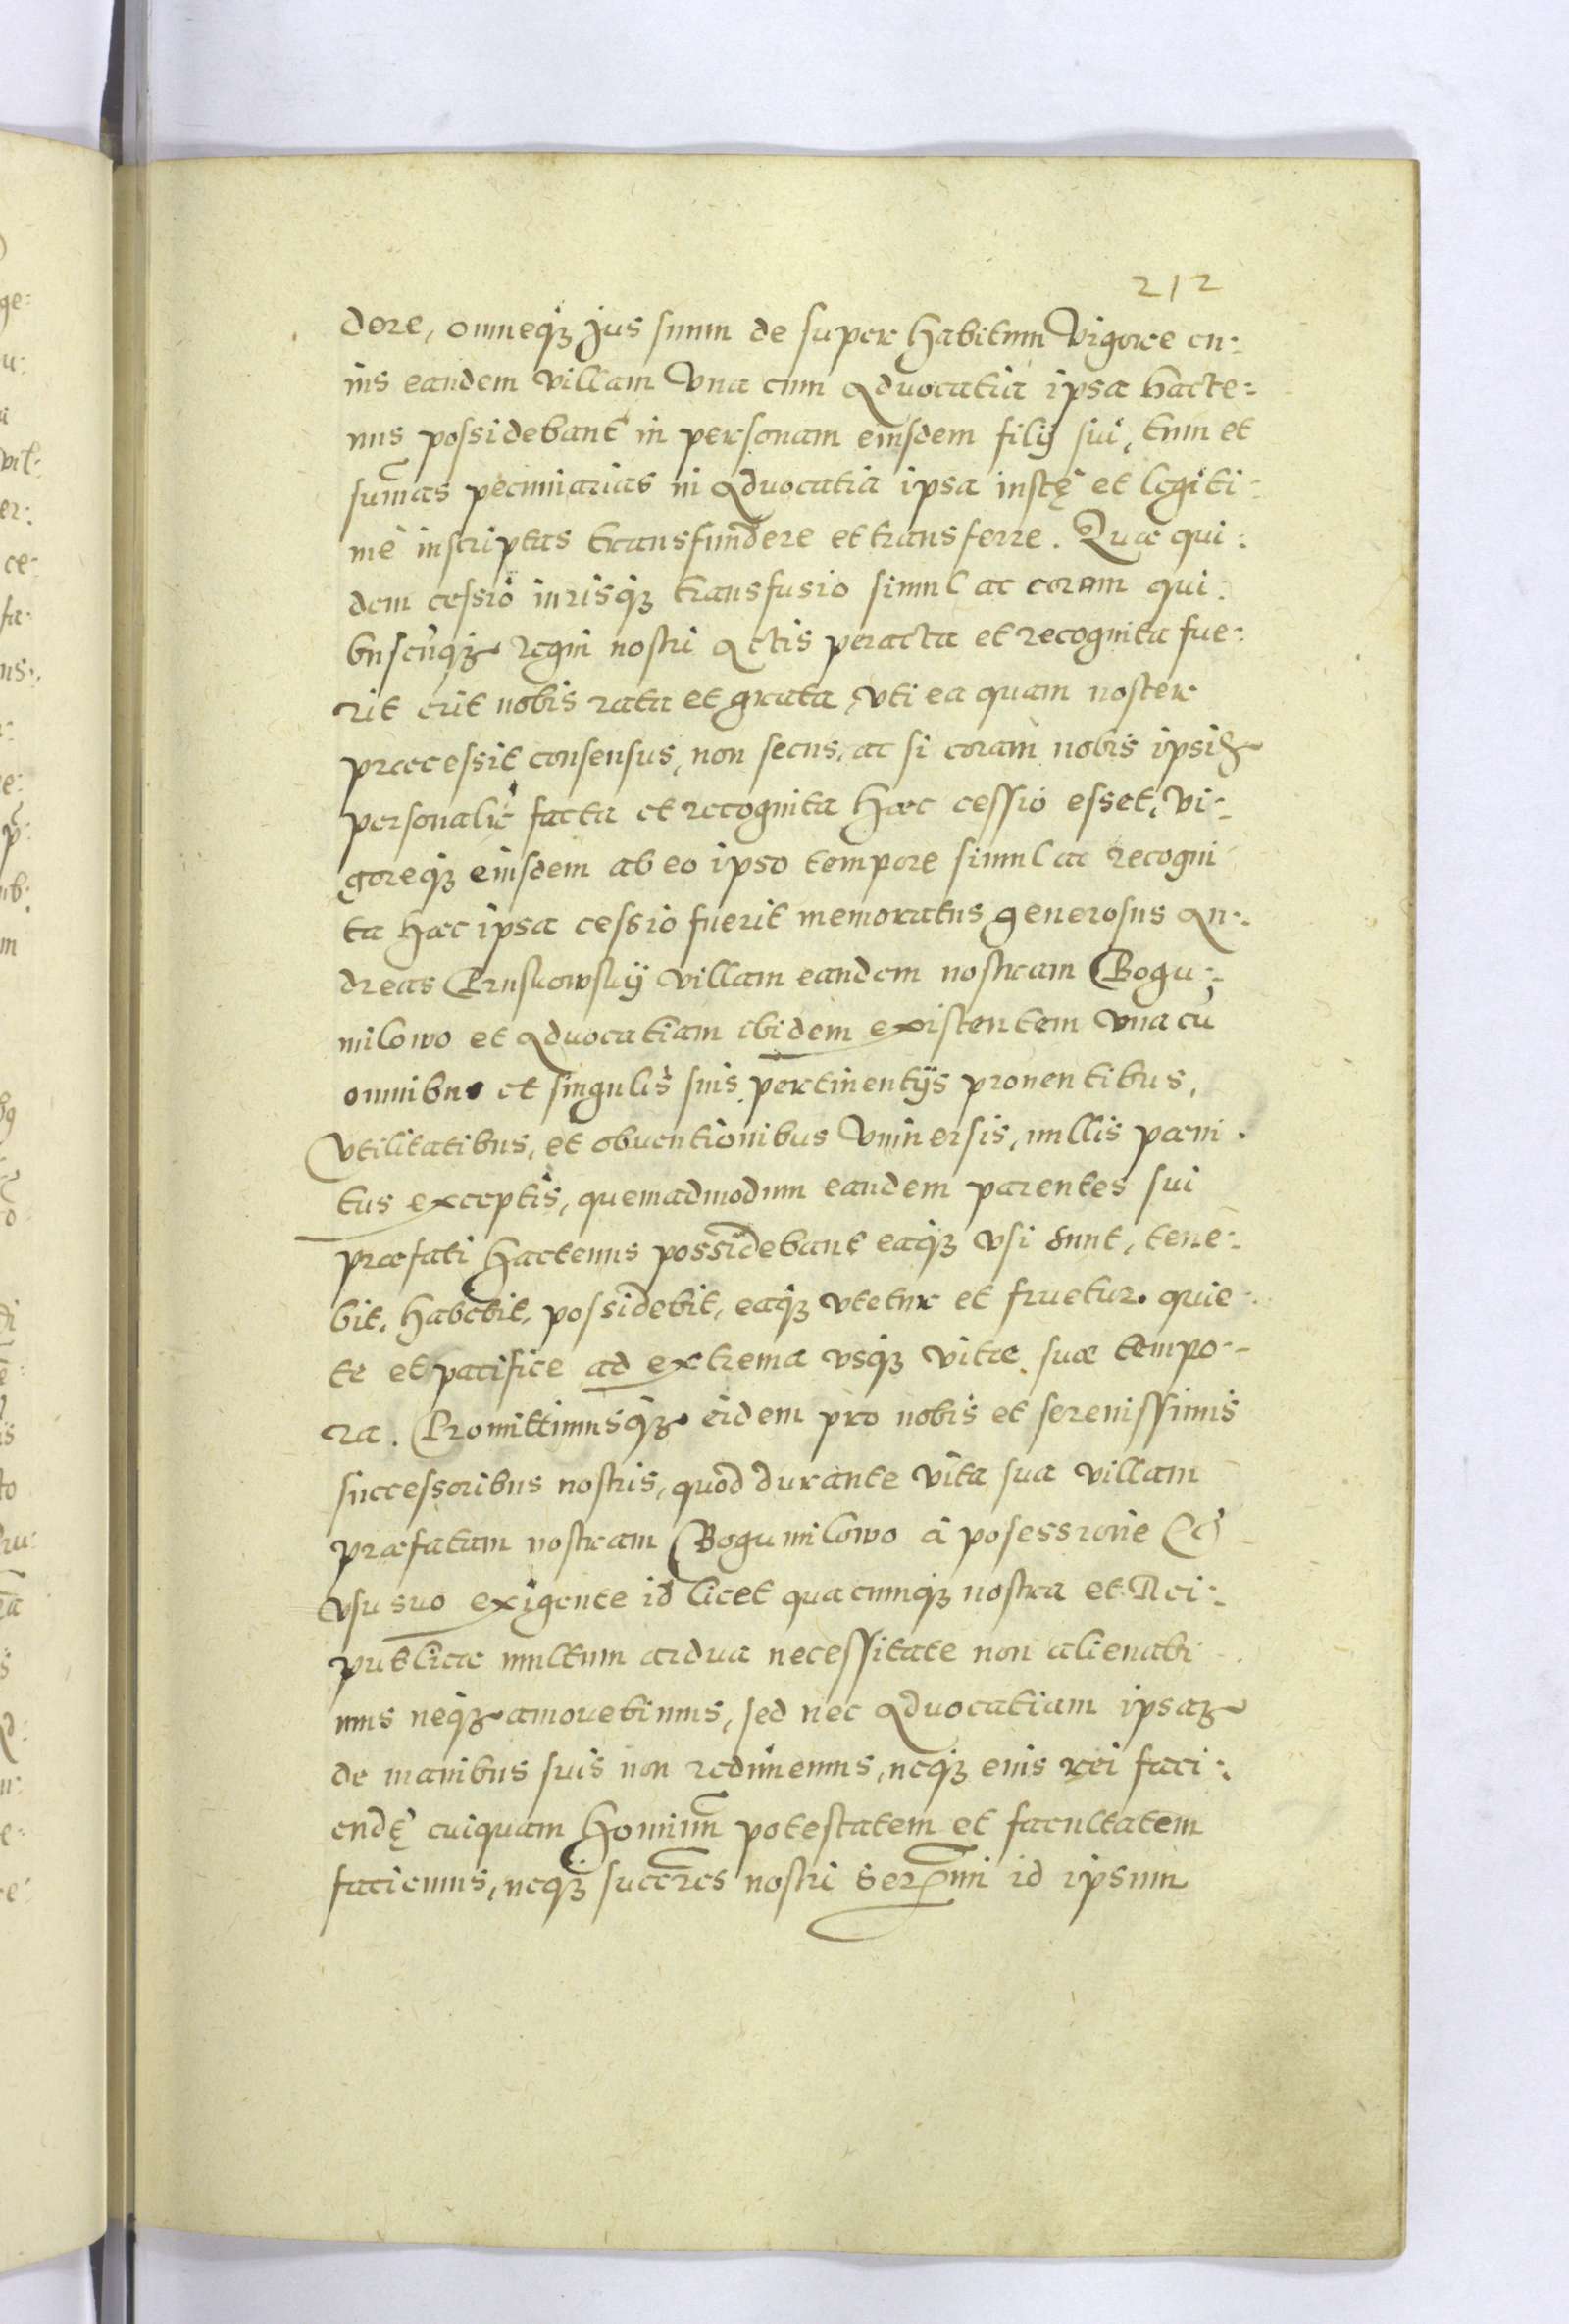 212
dere, omneqꝫ jus suum de super habitum vigore cu-
ius eandem villam vna cum Aduocatia ipsa hacte-
nus possidebant in personam eiusdem filij sui, tum et
sum̃as pecuniarias in Aduocatia ipsa iustę et legiti-
mè inscriptas transfundere et transferre. Quæ qui-
dem cessio iurisqꝫ transfusio simul ac coram qui-
buscũqꝫ regni nostri Actis peracta et recognita fue-
rit erit nobis rata et grata, vti ea quam noster
præcessit consensus, non secus, ac si coram nobis ipsiꝫ
personalit̃ facta et recognita hæc cessio esset, vi-
goreqꝫ eiusdem ab eo ipso tempore simul ac recogni
ta hæc ipsa cessio fuerit memoratus generosus An-
dreas Pruskowskij villam eandem nostram Bogu-
milowo et Aduocatiam ibidem existentem vna cũ
omnibus et singulis suis pertinentijs prouentibus,
vtilitatibus, et obuentionibus vniuersis, nullis pæni-
tus exceptis, quemadmodum eandem parentes sui
præfati hactenus possidebant eaqꝫ vsi sunt, tene-
bit, habebit, possidebit, eaqꝫ vtetur et fruetur. quie-
te et pacifice ad extrema vsqꝫ vitæ suæ tempo-
ra. Promittimusqꝫ eidem pro nobis et serenissimis
successoribus nostris, quod durante vita sua villam
præfatam nostram Bogumilowo à posessione et
vsu suo exigente id licet quacumqꝫ nostra et Rei-
publicæ multum ardua necessitate non alienabi-
mus neqꝫ amouebimus, sed nec Aduocatiam ipsaꝫ
de manibus suis non redimemus, neqꝫ eius rei faci-
endę cuiquam hominũ potestatem et facultatem
faciemus, neqꝫ succ̃res nostri Ser̃mi id ipsum